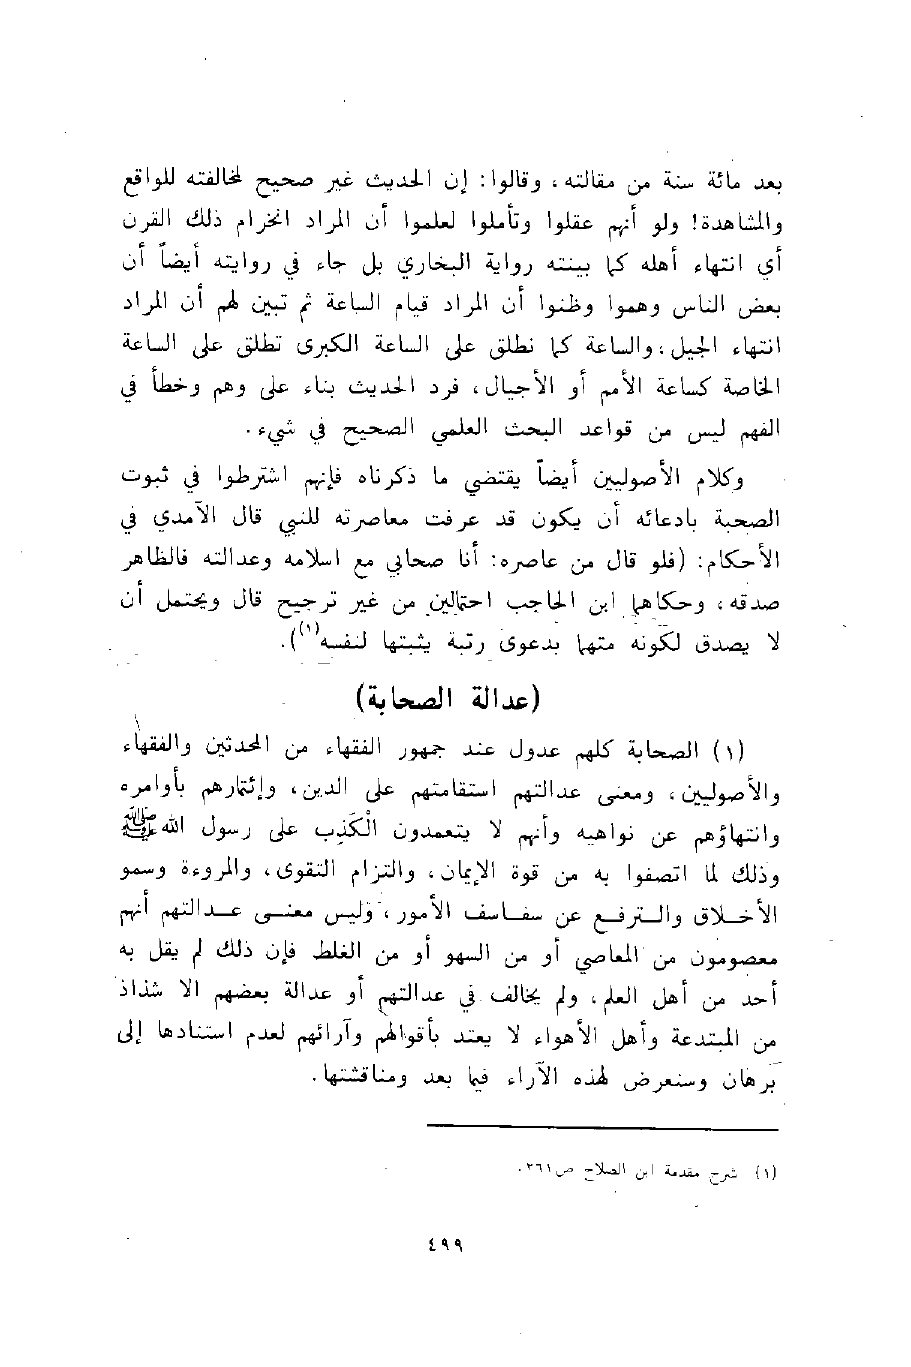 بعد مائة سنة من مقالته، وقالوا: إن الحديث غير صحيح لمخالفته للواقع
والمشاهدة! ولو أنهم عقلوا وتأملوا لعلموا أن المراد انخرام ذلك القرن
أي انتهاء أهله كما بينته رواية البخاري بل جاء في روايته أيضاً أن
بعض الناس وهموا وظنوا أن المراد قيام الساعة ثم تبين لهم أن المراد
انتهاء الجيل، والساعة كما تطلق على الساعة الكبرى تطلق على الساعة
الخاصة كساعة الأمم أو الأجيال، فرد الحديث بناء على وهم وخطأ في
الفهم ليس من قواعد البحث العلمي الصحيح في شيء.
وكلام الأصوليين أيضاً يقتضي ما ذكرناه فإنهم اشترطوا في ثبوت
الصحبة بادعائه أن يكون قد عرفت معاصرته للنبي قال الآمدي في
الأحكام: (فلو قال من عاصره: أنا صحابي مع اسلامه وعدالته فالظاهر
صدقه، وحكاهما ابن الحاجب احتمالين من غير ترجيح قال ويحتمل أن
لا يصدق لكونه متهما بدعوى رتبة يثبتها لنفسه(١)).
(عدالة الصحابة)
(١) الصحابة كلهم عدول عند جمهور الفقهاء من المحدثين والفقهاء
والأصوليين، ومعنى عدالتهم استقامتهم على الدين، وإئتمارهم بأوامره
وانتهاؤهم عن نواهيه وأنهم لا يتعمدون الْكَذِب على رسول الله ﷺ
وذلك لما اتصفوا به من قوة الإيمان، والتزام التقوى، والمروءة وسمو
الأخـلاق والـترفـع عن سفـاسف الأمور، وليس معنـى عـدالتهم أنهم
معصومون من المعاصي أو من السهو أو من الغلط فإن ذلك لم يقل به
أحد من أهل العلم، ولم يخالف في عدالتهم أو عدالة بعضهم الا شذاذ
من المبتدعة وأهل الأهواء لا يعتد بأقوالهم وآرائهم لعدم استنادها إلى
برهان وسنعرض لهذه الآراء فيما بعد ومناقشتها.
(١) شرح مقدمة ابن الصلاح ص٢٦١.
٤٩٩